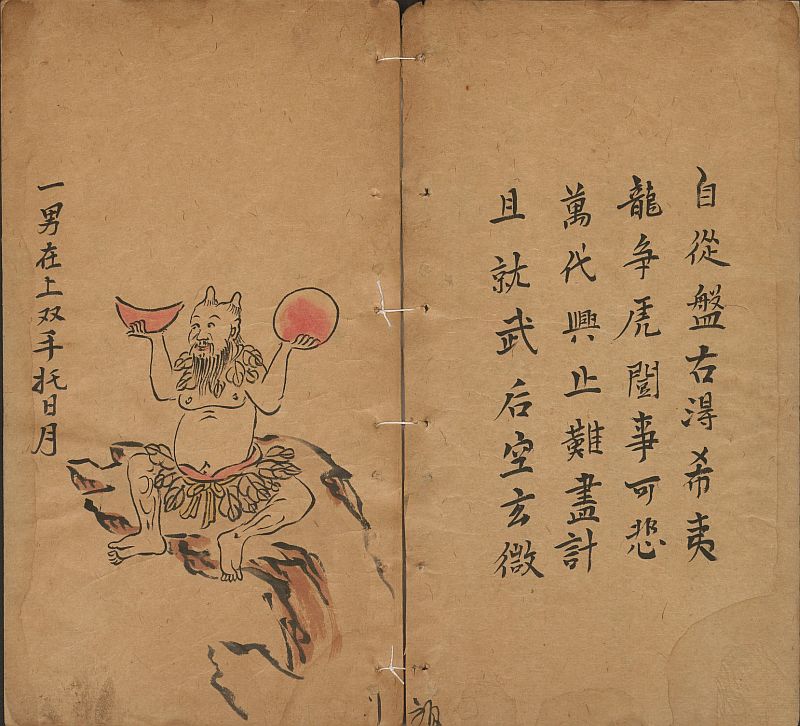 自從盤右淂希夷
龍争虎閗事可悲
萬代興止難盡計
且就武后空玄微
一男在上双手托日月